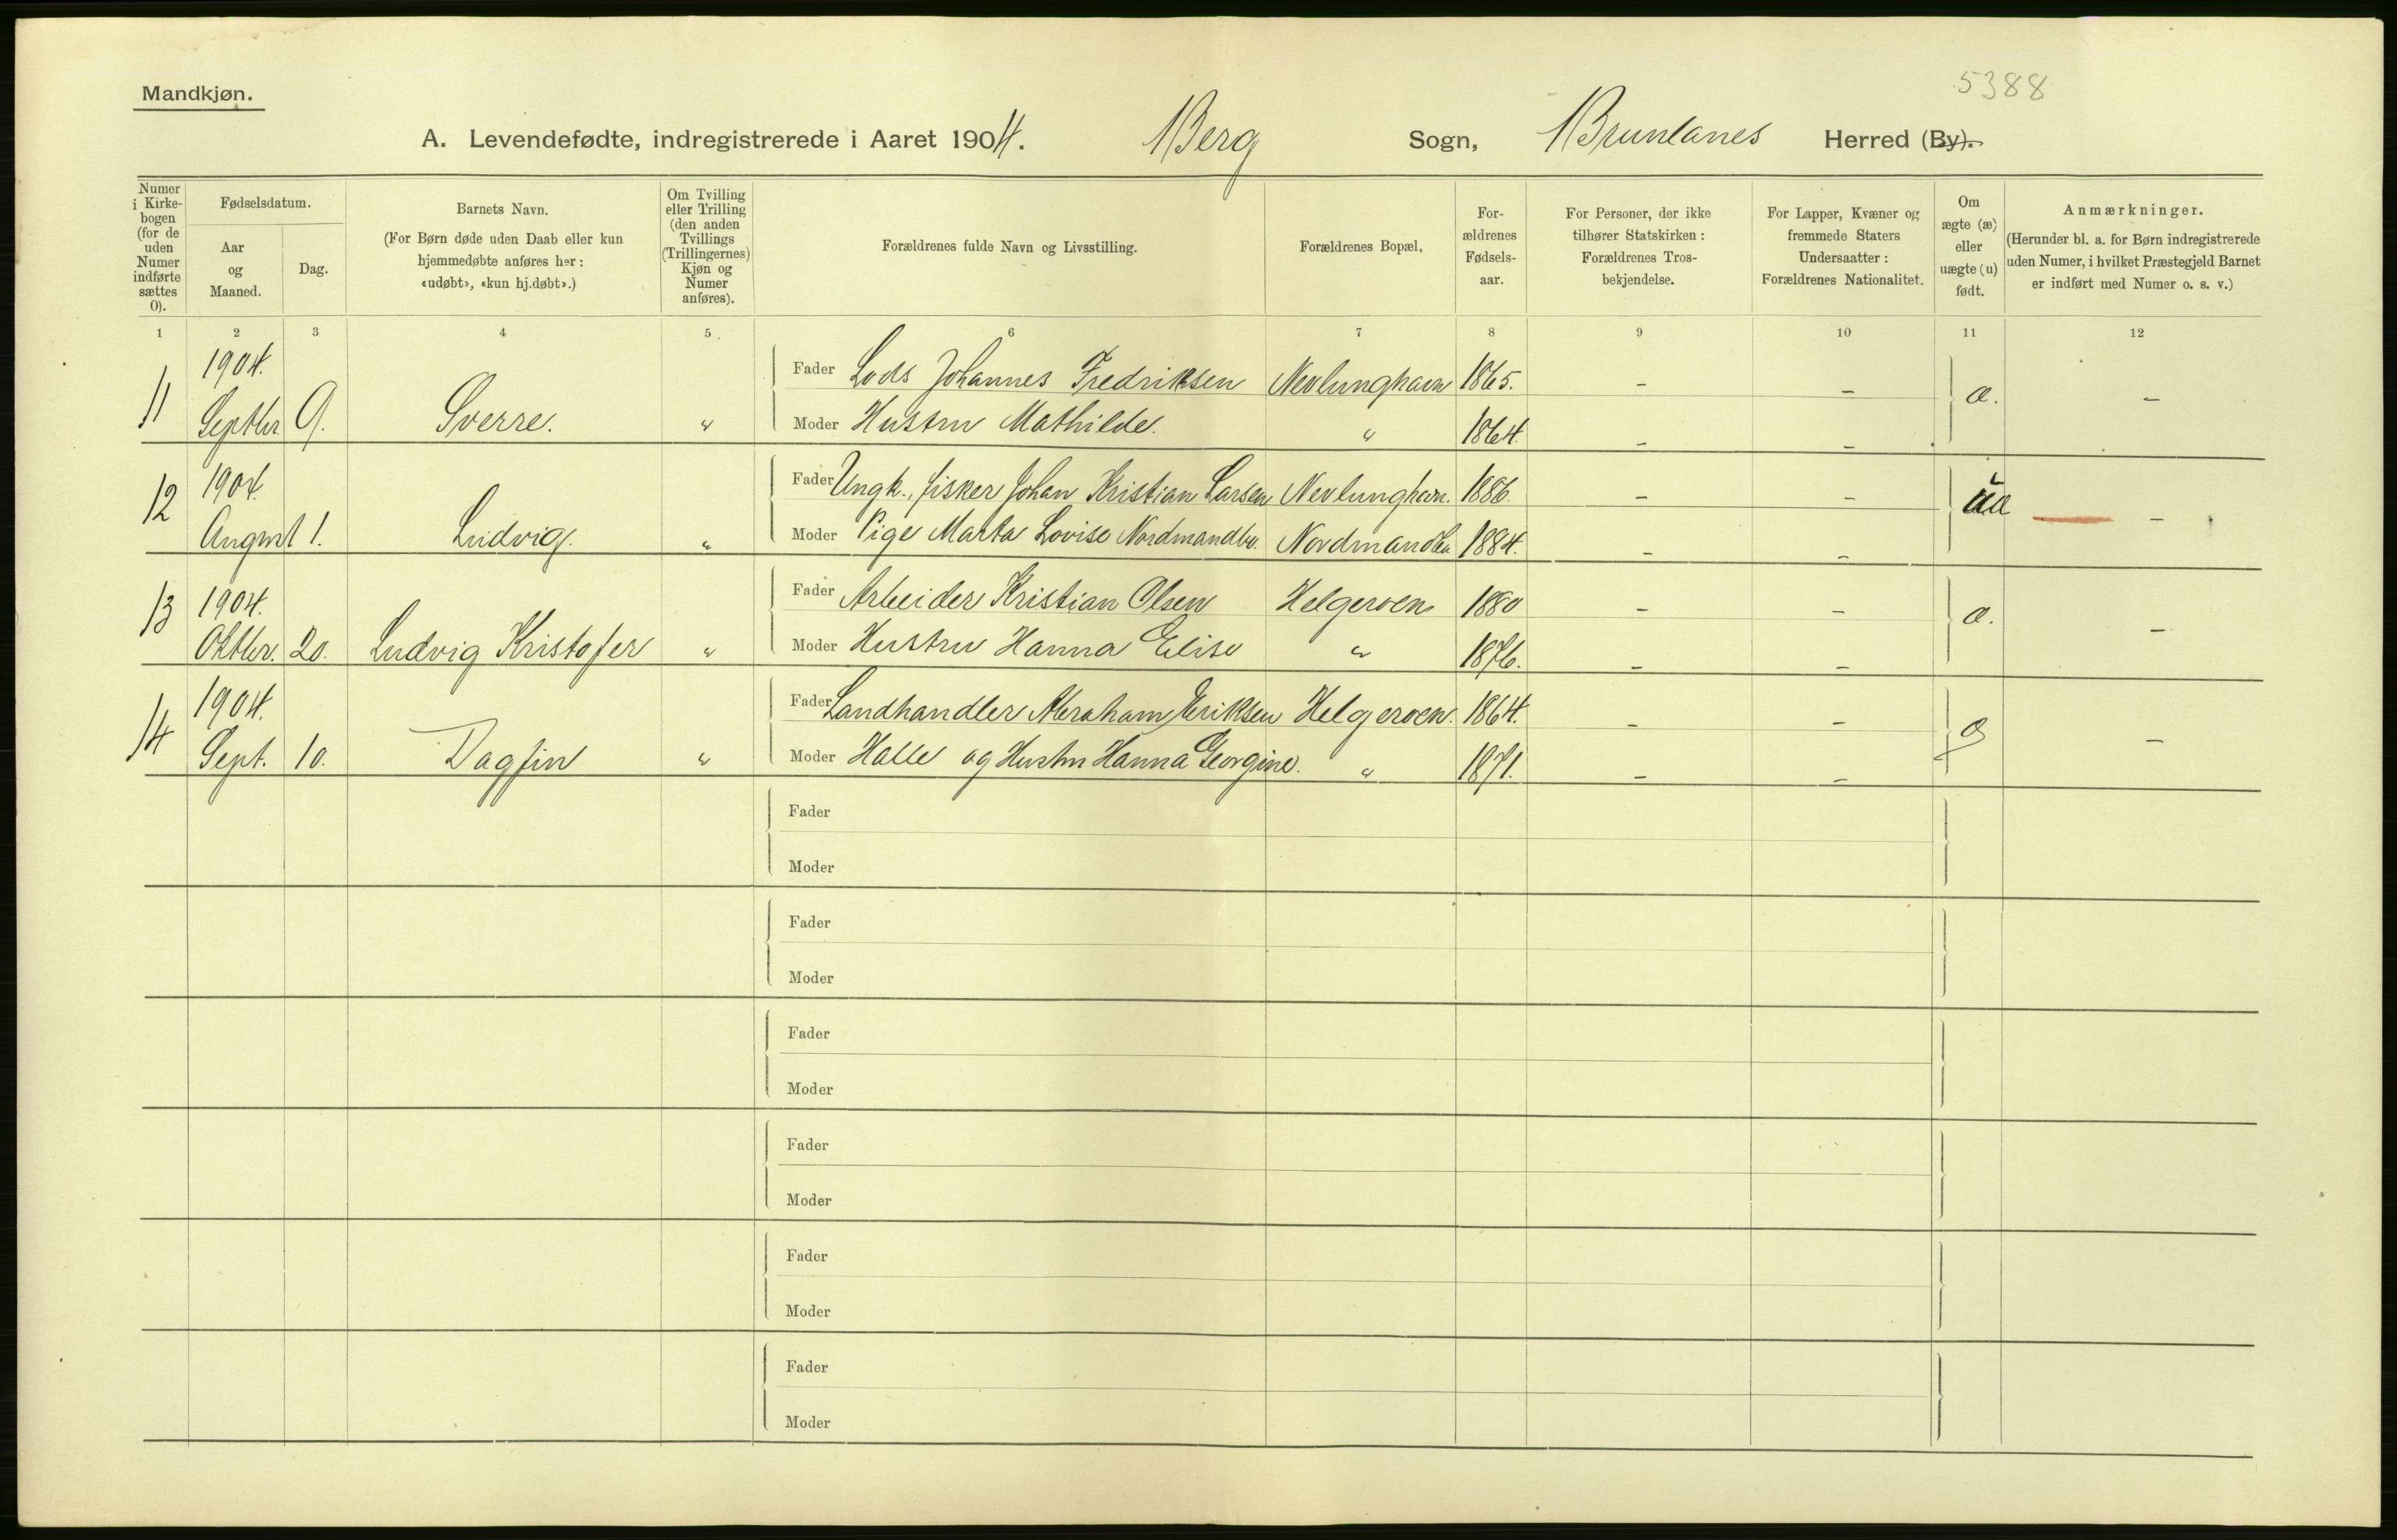 5388
Mandkjøn.
A. Levendefødte, indregistrerede i Aaret 1904. Berg Sogn, Brunlanes Herred (By).
Numer i Kirkebogen (for de uden Numer indførte sættes 0).
Fødselsdatum.
Aar og Maaned.
Dag.
Barnets Navn.
(For Børn døde uden Daab eller kun hjemmedøbte anføres her: «udøbt», «kun hj.døbt».)
Om Tvilling eller Trilling (den anden Tvillings (Trillingernes) Kjøn og Numer anføres).
Forældrenes fulde Navn og Livsstilling.
Forældrenes Bopæl,
For-ældrenes Fødsels-aar.
For Personer, der ikke tilhører Statskirken: Forældrenes Tros-bekjendelse.
For Lapper, Kvæner og fremmede Staters Undersaatter: Forældrenes Nationalitet.
Om ægte (æ) eller uægte (u) født.
Anmærkninger.
(Herunder bl. a. for Børn indregistrerede uden Numer, i hvilket Præstegjeld Barnet er indført med Numer o. s. v.)
1 2 3 4 5 6 7 8 9 10 11 12
11 1904. Septbr. 9. Sverre. "
Fader Lods Johannes Fredriksen Nevlunghavn 1865. - - æ. -
Moder Hustru Mathilde. " 1864. - -
12 1904. August 1. Ludvig. "
Fader Ungk., fisker Johan Kristian Larsen Nevlunghavn. 1886. - - -
Moder Pige Marta Lovise Nordmandbu. 1884. - -
13 1904. Oktbr. 20. Ludvig Kristofer "
Fader Arbeider Kristian Olsen Helgeroen 1880 - - æ. -
Moder Hustru Hanna Elise " 1876. - -
14 1904. Sept. 10. Dagfin "
Fader Landhandler Abraham Eriksen Helgeroen. 1864. - - -
Moder Halle og Hustru Hanna Georgine. " 1871. - -
Fader
Moder
Fader
Moder
Fader
Moder
Fader
Moder
Fader
Moder
Fader
Moder